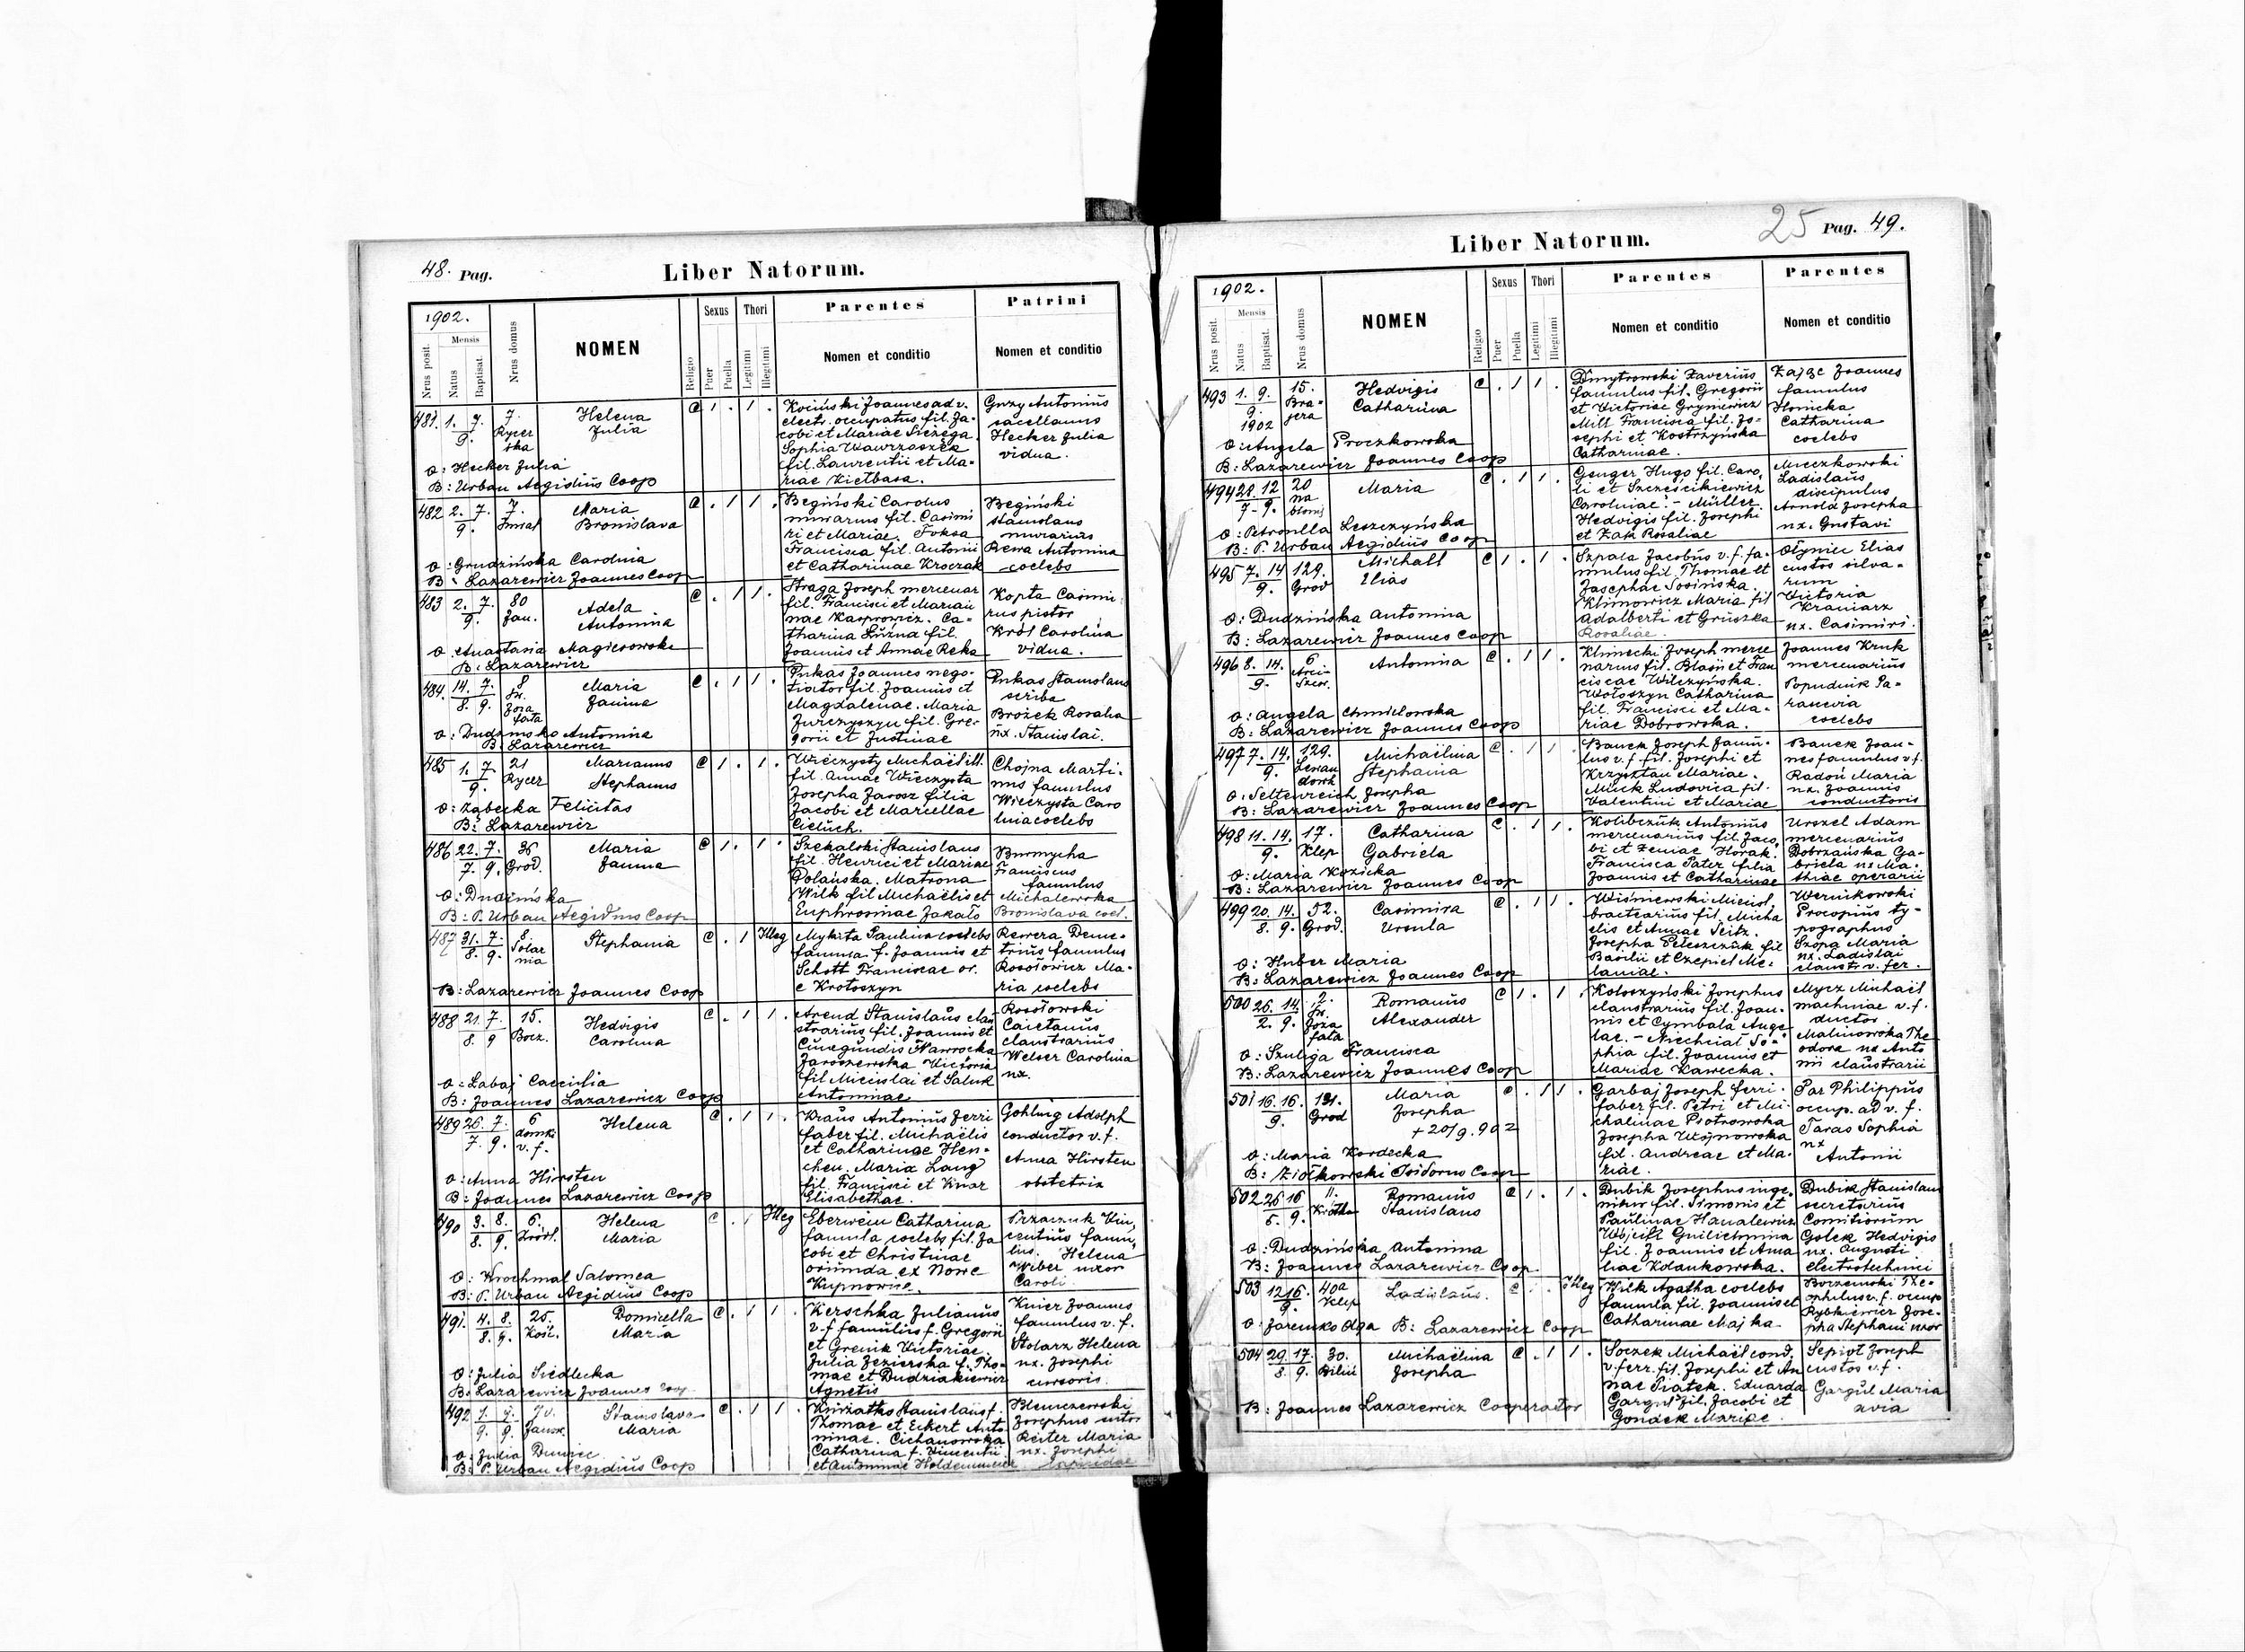 48. Pag.
Liber Natorum.
1902.
Nrus posit.
Mensis
Natus
Baptisat.
Nrus domus
NOMEN
Religio
Sexus
Puer
Puella
Thori
Legitimi
Illegitimi
Parentes
Nomen et conditio
Patrini
Nomen et conditio
481. 1. 7. 7.
9. Rycer
ska
Helena
Julia
Kociński Joannes ad v.
electr. occupatus fil. Ja-
cobi et Mariae
Sophia Wawrzaszek
fil. Laurentii et Ma-
riae Kiełbasa.
Antonius
sacellanus
Hecker Julia
vidua.
O: Hecker Julia
B: Urban Aegidius Coop
482 2. 7. 7.
9.
Maria
Bronislava
Begiński Carolus
murarius fil. Casimi
ri et Mariae. Foksa
Francisca fil. Antonii
et Catharinae Kroczak
Begiński
Stanislaus
murarius
Rewa Antonina
coelebs
O: Grudzińska Carolina
B: Lazarewicz Joannes Coop
483 2. 7. 80
9. Jan.
Adela
Antonina
Straga Joseph mercenar
fil. Francisci et Marian
nae Karpowicz. Ca-
tharina Luźna fil.
Joannis et Annae Reka
Kopta Casimi-
rus pistor
Król Carolina
vidua.
O: Anastasia Magierowska
B: Lazarewicz
484. 14. 7. 8
8. 9. Św.
Joza
fata
Maria
Janina
Pukas Joannes nego-
tiator fil. Joannis et
Magdalenae. Maria
Jurczyszyn fil. Gre-
gorii et Justinae
Pukas Stanislaus
scriba
Brożek Rosalia
ux. Stanislai.
O: Dudzinska Antonina
B: Lazarewicz
485 1. 7 21
9. Rycer
Marianus
Stephanus
Wieczysty Michaël ill.
fil. Annae Wieczysta
Josepha Jarosz filia
Jacobi et Marcellae
Cieluch.
Chojna Marti-
nus famulus
Wieczysta Caro
lina coelebs
O: Ząbecka Felicitas
B: Lazarewicz
486 22. 7. 36
7. 9. Gród.
Maria
Janina
Szekalski Stanislaus
fil. Henrici et Mariae
Polańska. Matrona
Wilk fil Michaëlis et
Euphrosinae Zakało
Burmycha
Franciscus
famulus
Michalewska
Bronislava coel.
O: Dudzińska
B: P. Urban Aegidius Coop
487 31. 7. 8.
8. 9. Solar
nia
Stephania
Illeg
Mykita Paulina coelebs
famula f. Joannis et
Schott Franciscae or.
e Krotoszyn
Rewera Deme-
trius famulus
Rosołowicz Ma-
ria coelebs
B: Lazarewicz Joannes Coop
488 21. 7. 15.
8. 9 Bocz.
Hedvigis
Carolina
Arend Stanislaus clau
strarius fil. Joannis et
Cunegundis Nawrocka
Jaroszewska Victoria
fil Micislai et Saluk
Antoninae
Rosołowski
Caietanus
claustrarius
Welser Carolina
ux.
O: Labaj Caecilia
B: Joannes Lazarewicz Coop
489 26. 7. 6
7. 9. domki
v. f.
Helena
Kraus Antonius ferri
faber fil. Michaëlis
et Catharinae Hen-
chen. Maria Lang
fil. Francisci et Knar
Elisabethae.
Gohling Adolph
conductor v. f.
Anna Hirsten
obstetrix
O: Anna Hirsten
B: Joannes Lazarewicz Coop
490 3. 8. 6.
8. 9. Źródł.
Helena
Maria
Illeg
Eberwein Catharina
famula coelebs fil. Ja
cobi et Christinae
oriunda ex Nowe
Kupnowice.
Przaczuk Vin-
centius famu-
lus. Helena
Wiber uxor
Caroli.
O: Krochmal Salomea
B: P. Urban Aegidius Coop
491. 4. 8. 25.
8. 9. Kośc.
Domicella
Maria
Kerschka Julianus
v. f famulus f. Gregorii
et Grenik Victoriae.
Julia Jezierska f. Tho-
mae et Dudziakiewicz
Agnetis
Knier Joannes
famulus v. f.
Stolarz Helena
ux. Josephi
cursoris.
O: Julia Siedlecka
B: Lazarewicz Joannes Coop
492
9. 9. Janow.
Stanislava
Maria
Stanislaus f.
Thomae et Eckert Anto
ninae. Cichanowska
Catharina f. Vincentii
et Antoninae
Klemczewski
Josephus sutor
Reiter Maria
ux. Josephi
lapicidae
O: Julia Duniec
B: P. Urban Aegidius Coop
25 Pag. 49.
Liber Natorum.
1902.
Nrus posit.
Mensis
Natus
Baptisat.
Nrus domus
NOMEN
Religio
Sexus
Puer
Puella
Thori
Legitimi
Illegitimi
Parentes
Nomen et conditio
Parentes
Nomen et conditio
493 1. 9. 15.
9. Bra-
1902 jera
Hedvigis
Catharina
Dmytrowski Xaverius
famulus fil. Gregorii
et Victoriae Gryniewicz
Mill Francisca fil. Jo-
sephi et Kostrzyńska
Catharinae.
Zając Joannes
famulus
Honicka
Catharina
coelebs
O: Angela Proczkowska
B: Lazarewicz Joannes Coop
494 28. 12 20
7- 9. na
błonie
Maria
Genger Hugo fil. Caro-
li et Szcześcikiewicz
Carolinae. - Müller
Hedvigis fil. Josephi
et Zak Rosaliae
Mieczkowski
Ladislaus
discipulus
Arnold Josepha
ux. Gustavi
O: Petronella Leszczyńska
B: P. Urban Aegidius Coop
495 7. 14 129.
9. Grod
Michaël
Elias
Szpala Jacobus v. f. fa-
mulus fil. Thomae et
Josephae Sosińska.
Klimowicz Maria fil
Adalberti et Gruszka
Rosaliae.
Ołyniec Elias
custos silva-
rum
Victoria
Kraniarz
ux. Casimiri.
O: Dudzińska Antonina
B: Lazarewicz Joannes Coop
496 8. 14. 6
9.
Antonina
Klimecki Joseph merce
narius fil. Blasii et Fran
ciscae Wilczyńska.
Wołoszyn Catharina
fil. Francisci et Ma-
riae Dobrowska.
Joannes Kruk
mercenarius
Popudnik Pa-
rascevia
coelebs
O: Angela Chmielowska
B: Lazarewicz Joannes Coop
497 7. 14. 129.
9. Lewan
dowk
Michaëlina
Stephania
Banek Joseph famu-
lus v. f fil. Josephi et
Krzysztan Mariae.
Muck Ludovica fil.
Valentini et Mariae
Banek Joan-
nes famulus v f.
Radoń Maria
ux. Joannis
conductoris
O: Seltenreich Josepha
B: Lazarewicz Joannes Coop
498 11. 14. 17.
9. Klep
Catharina
Gabriela
Kolibczuk Antonius
mercenarius fil. Jaco-
bi et Xeniae Horak.
Francisca Pater filia
Joannis et Catharinae
Urszel Adam
mercenarius
Dobrzańska Ga-
briela ux Ma-
thiae operarii
O: Maria Kozicka
B: Lazarewicz Joannes Coop
499 20. 14. 52.
8. 9. Grod.
Casimira
Ursula
Wiśniewski Miecisl.
bractearius fil. Micha
elis et Annae Seitz.
Josepha Peleszczuk fil
Basilii et Czepiel Me-
laniae.
Wernikowski
Procopius ty-
pographus
Szopa Maria
ux. Ladislai
claustr. v. fer.
O: Huber Maria
B: Lazarewicz Joannes Coop
500 26. 14. 2.
2. 9. Św.
Joza
fata
Romanus
Alexander
Kołoszyński Josephus
claustrarius fil. Joan-
nis et Cymbala Ange
lae. - Niechciał So-
phia fil. Joannis et
Mariae Kawecka.
Mycz Michaël
machinae v. f.
ductor
Malinowska The
odora ux Anto
nii claustrarii
O: Szuliga Francisca
B: Lazarewicz Joannes Coop
501 16. 16. 131.
9. Grod
Maria
Josepha
+ 20/9. 902
Garbaj Joseph ferri-
faber fil. Petri et Mi-
chalinae Piotrowska
Josepha Wojnowska
fil. Andreae et Ma-
riae.
Par Philippus
occup. ad v. f.
Taras Sophia
ux
Antonii
O: Maria Kordecka
B: Ziołkowski Isidorus Coop
502 26 16 11.
6. 9. Krótka
Romanus
Stanislaus
Dubik Josephus inge-
nieur fil. Simonis et
Paulinae Hanalewicz
Wójcik
fil. Joannis et Ama
liae Kolankowska.
Dubik Stanislaus
secretarius
Comitiorum
Golek Hedvigis
ux. Augusti
electrotechnici
O: Dudzińska Antonina
B: Joannes Lazarewicz Coop
503 12 16. 40a
9. Klep
Ladislaus.
Illeg
Wilk Agatha coelebs
famula fil. Joannis et
Catharinae Majka.
Borzemski The-
ophilus v. f. occup
Rybkiewicz Jose-
pha Stephani uxor
O: Jaremko Olga B: Lazarewicz Coop
504 29. 17. 30.
8. 9. Bilin
Michaëlina
Josepha
Soczek Michaël cond.
v. ferr. fil. Josephi et An
nae Piątek. Eduarda
Gargul fil. Jacobi et
Gondek Mariae.
Sepiot Joseph
custos v. f.
Gargul Maria
avia
B: Joannes Lazarewicz Cooperator